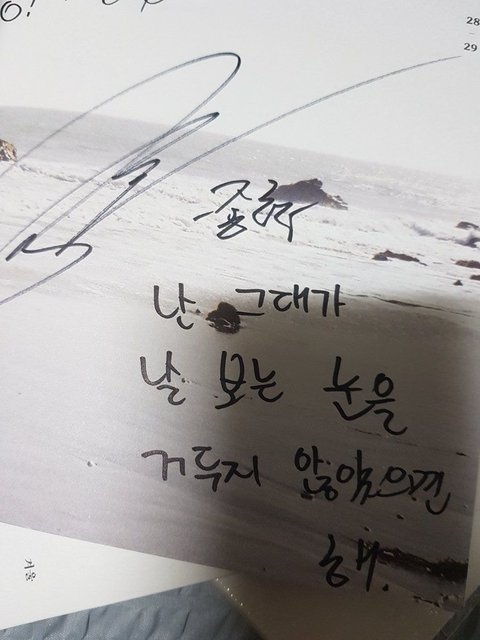 28
29
종혁
난 그대가
날 보는 눈을
거두지 않았으면
해.
겨울